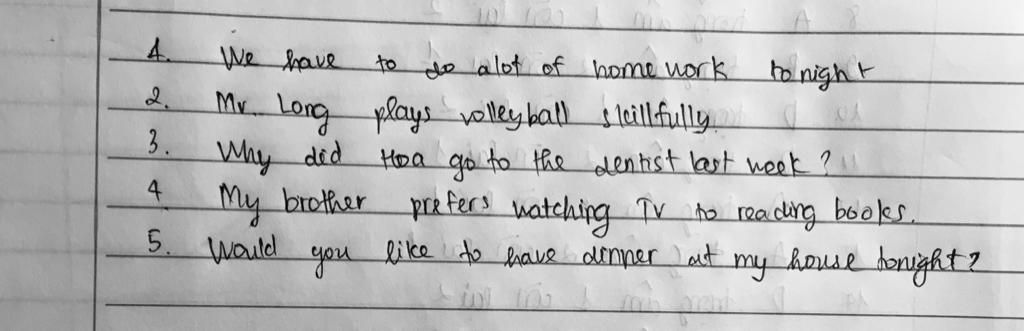 1. We have to do alot of home work tonight
2. Mr. Long plays volleyball skillfully.
3. Why did Hoa go to the dentist last week?
4 My brother prefers watching TV to reading books.
5. Would you like to have dinner at my house tonight?